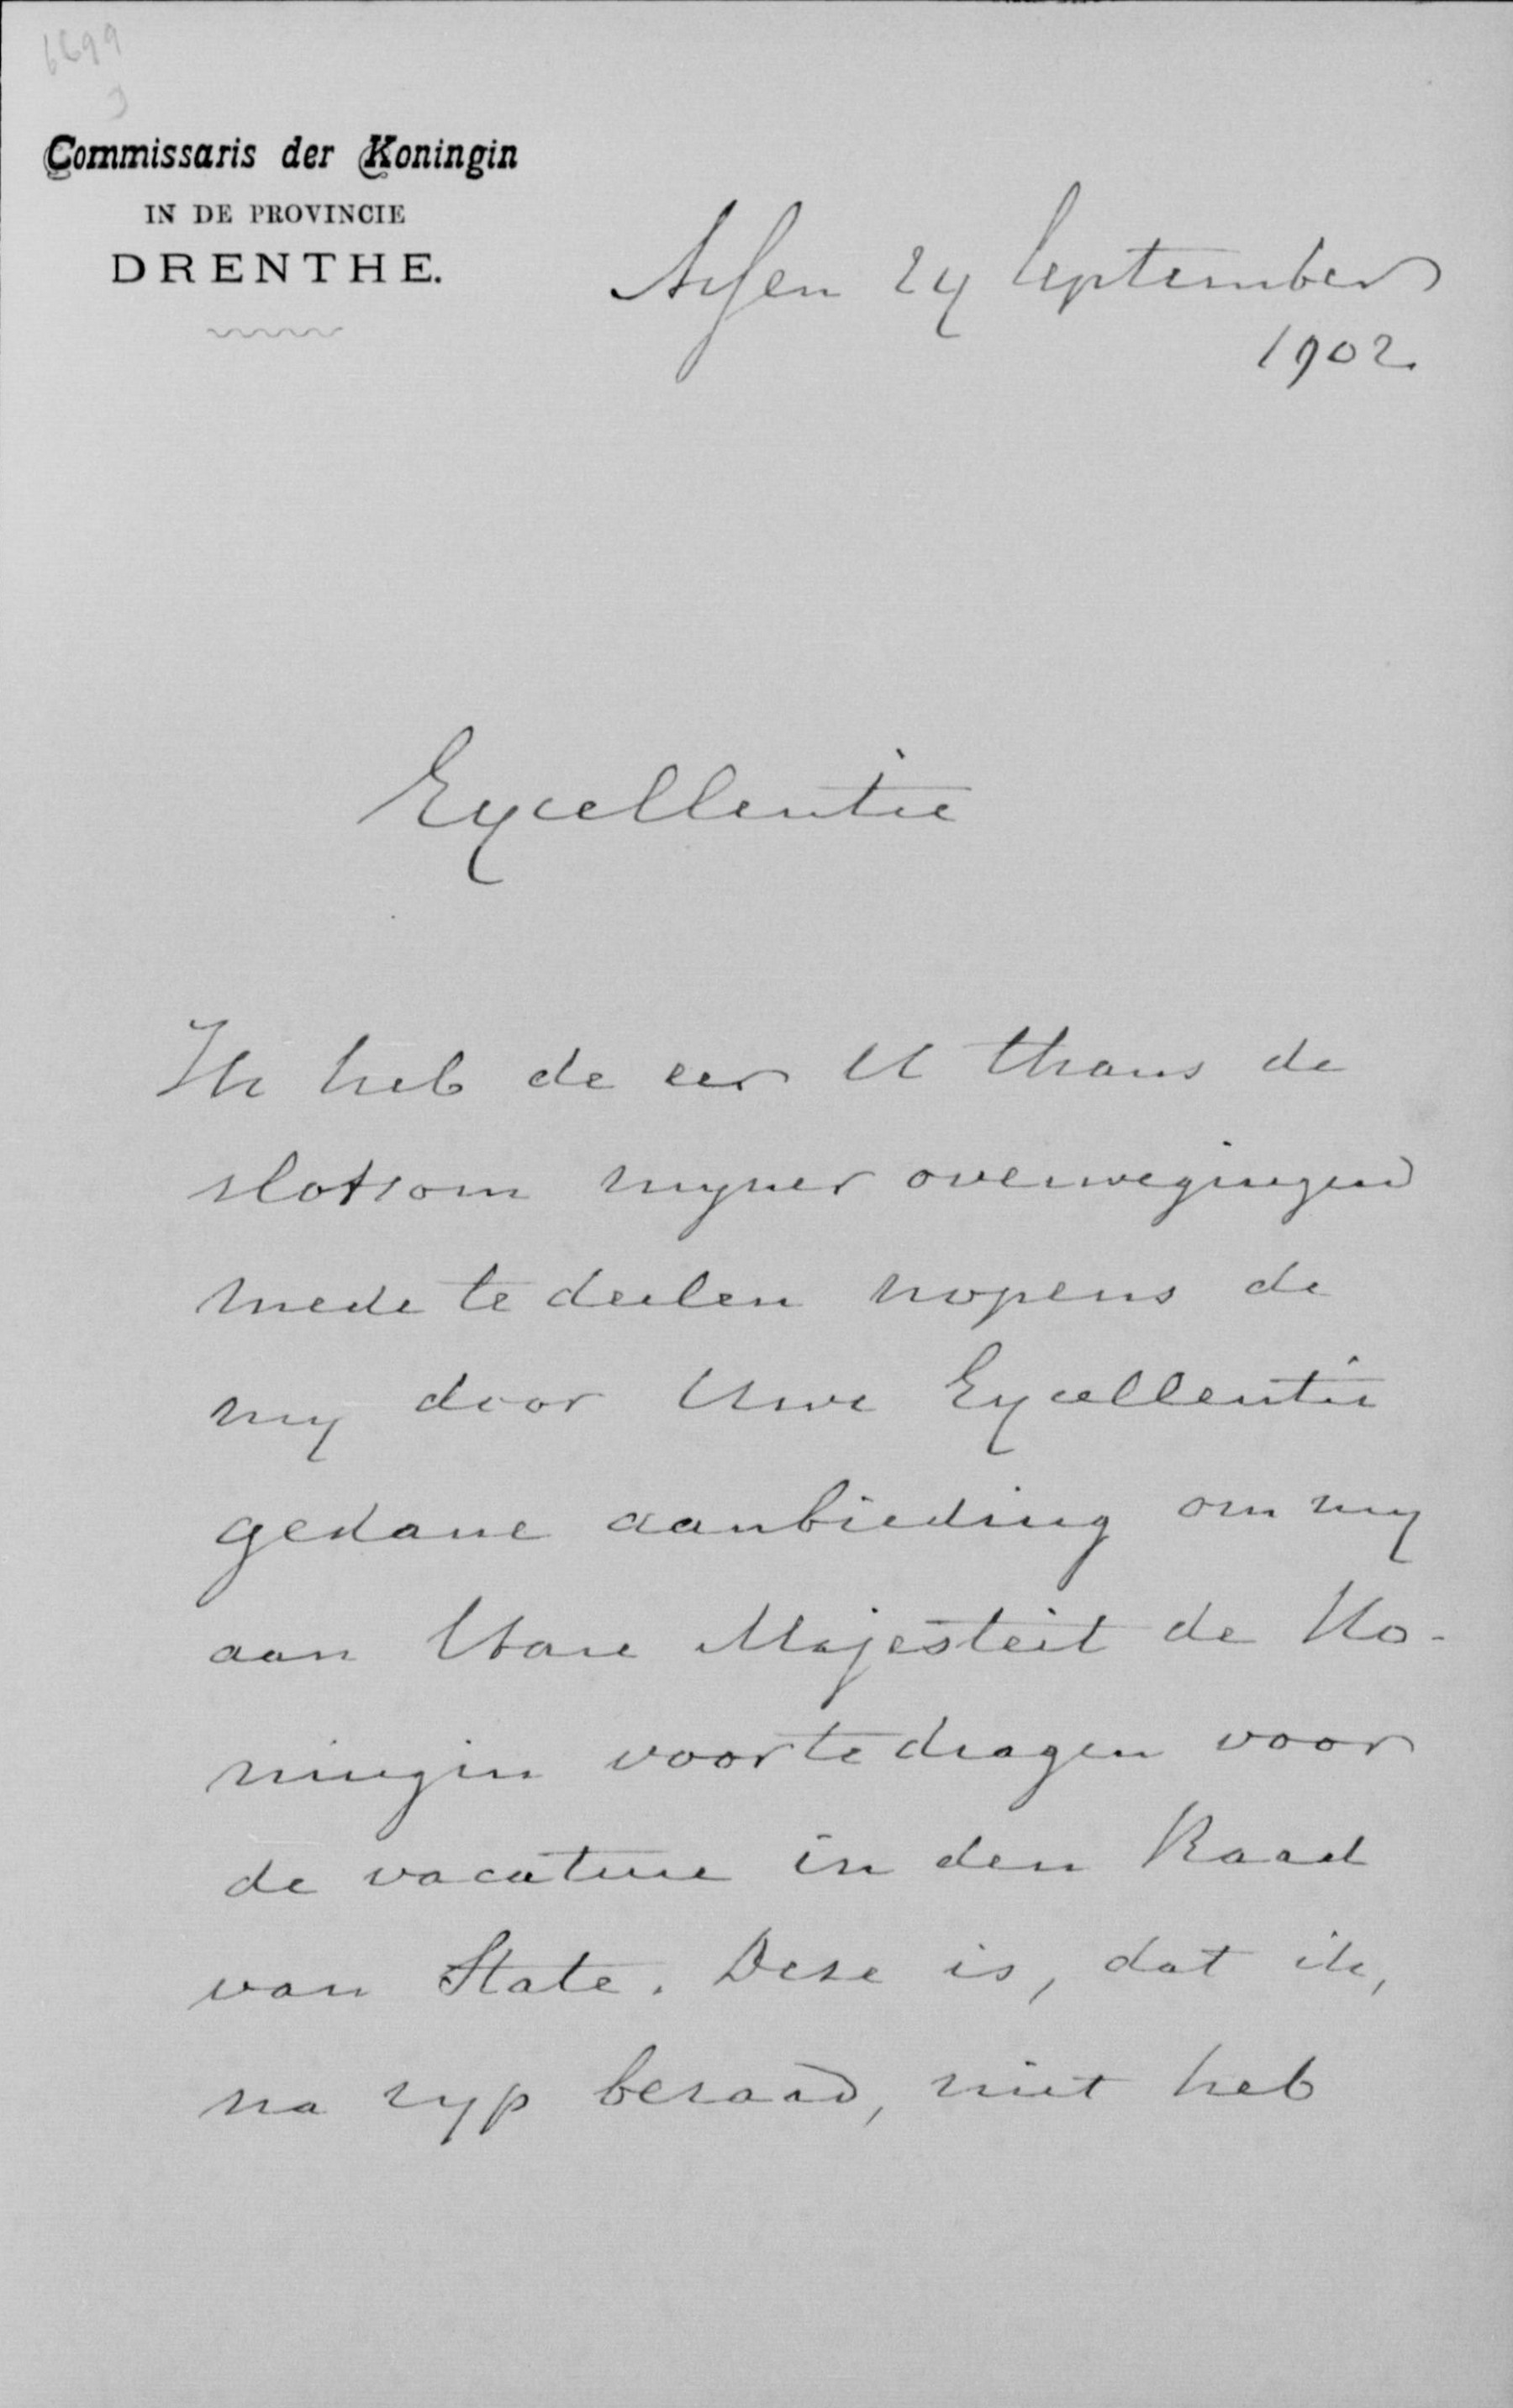 6699
3
Commissaris der Koningin
IN DE PROVINCIE
DRENTHE.
Assen 24 September
1902.
Excellentie
Ik heb de eer U thans de
slotsom mijner overwegingen
mede te deelen nopens de
mij door Uwe Excellentie
gedane aanbieding om mij
aan Hare Majesteit de Ko-
ningin voortedragen voor
de vacature in den Raad
van State. Deze is, dat ik,
na rijp beraad, niet heb